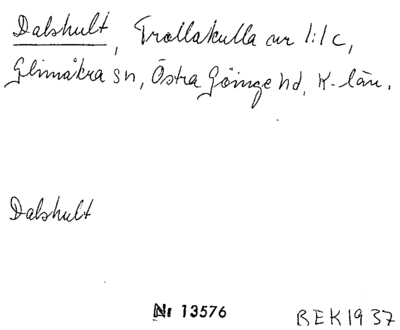 Dalshult, Trollakulla nr 1:1 c,
Glimåkra sn, Östra Göinge hd, K-län.
Dalshult
Nr 13576
BEK 1937